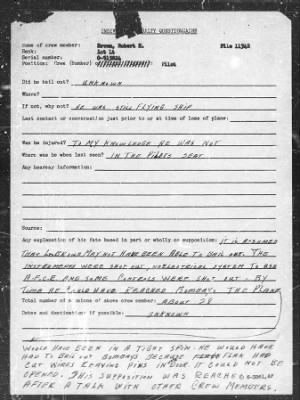 CASUALTY QUESTIONNAIRE
Name of crew member: Brown, Robert E. File 11342
Rank: 1st Lt
Serial number:
Position: Crew (Bomber) Pilot
Did he bail out? UNKNOWN
Where?
If not, why not? HE WAS STILL FLYING SHIP
Last contact or conversation just prior to or at time of loss of plane:
Was he injured? TO MY KNOWLEDGE HE WAS NOT
Where was he when last seen? IN THE PILOTS SEAT
Any hearsay information:
Source:
Any explanation of his fate based in part or wholly on supposition: IT IS ASSUMED
THAT MAY NOT HAVE BEEN ABLE TO BAIL OUT. THE
INSTRUMENTS WERE SHOT OUT, NO ELECTRICAL SYSTEM TO USE
A.F.C.E. AND SOME CONTROLS WERE SHOT OUT. BY
TIME HE COULD HAVE REACHED BOMBAYS, THE PLANE
Total number of missions of above crew member: ABOUT 28
Dates and destination if possible: UNKNOWN
WOULD HAVE BEEN IN A TIGHT SPIN. HE WOULD HAVE
HAD TO BAIL OUT BOMBAYS BECAUSE FLAK HAD
CUT WIRES LEAVING PINS IN DOOR. IT COULD NOT BE
OPENED. THIS SUPPOSITION WAS REACHED
AFTER A TALK WITH OTHER CREW MEMBERS.